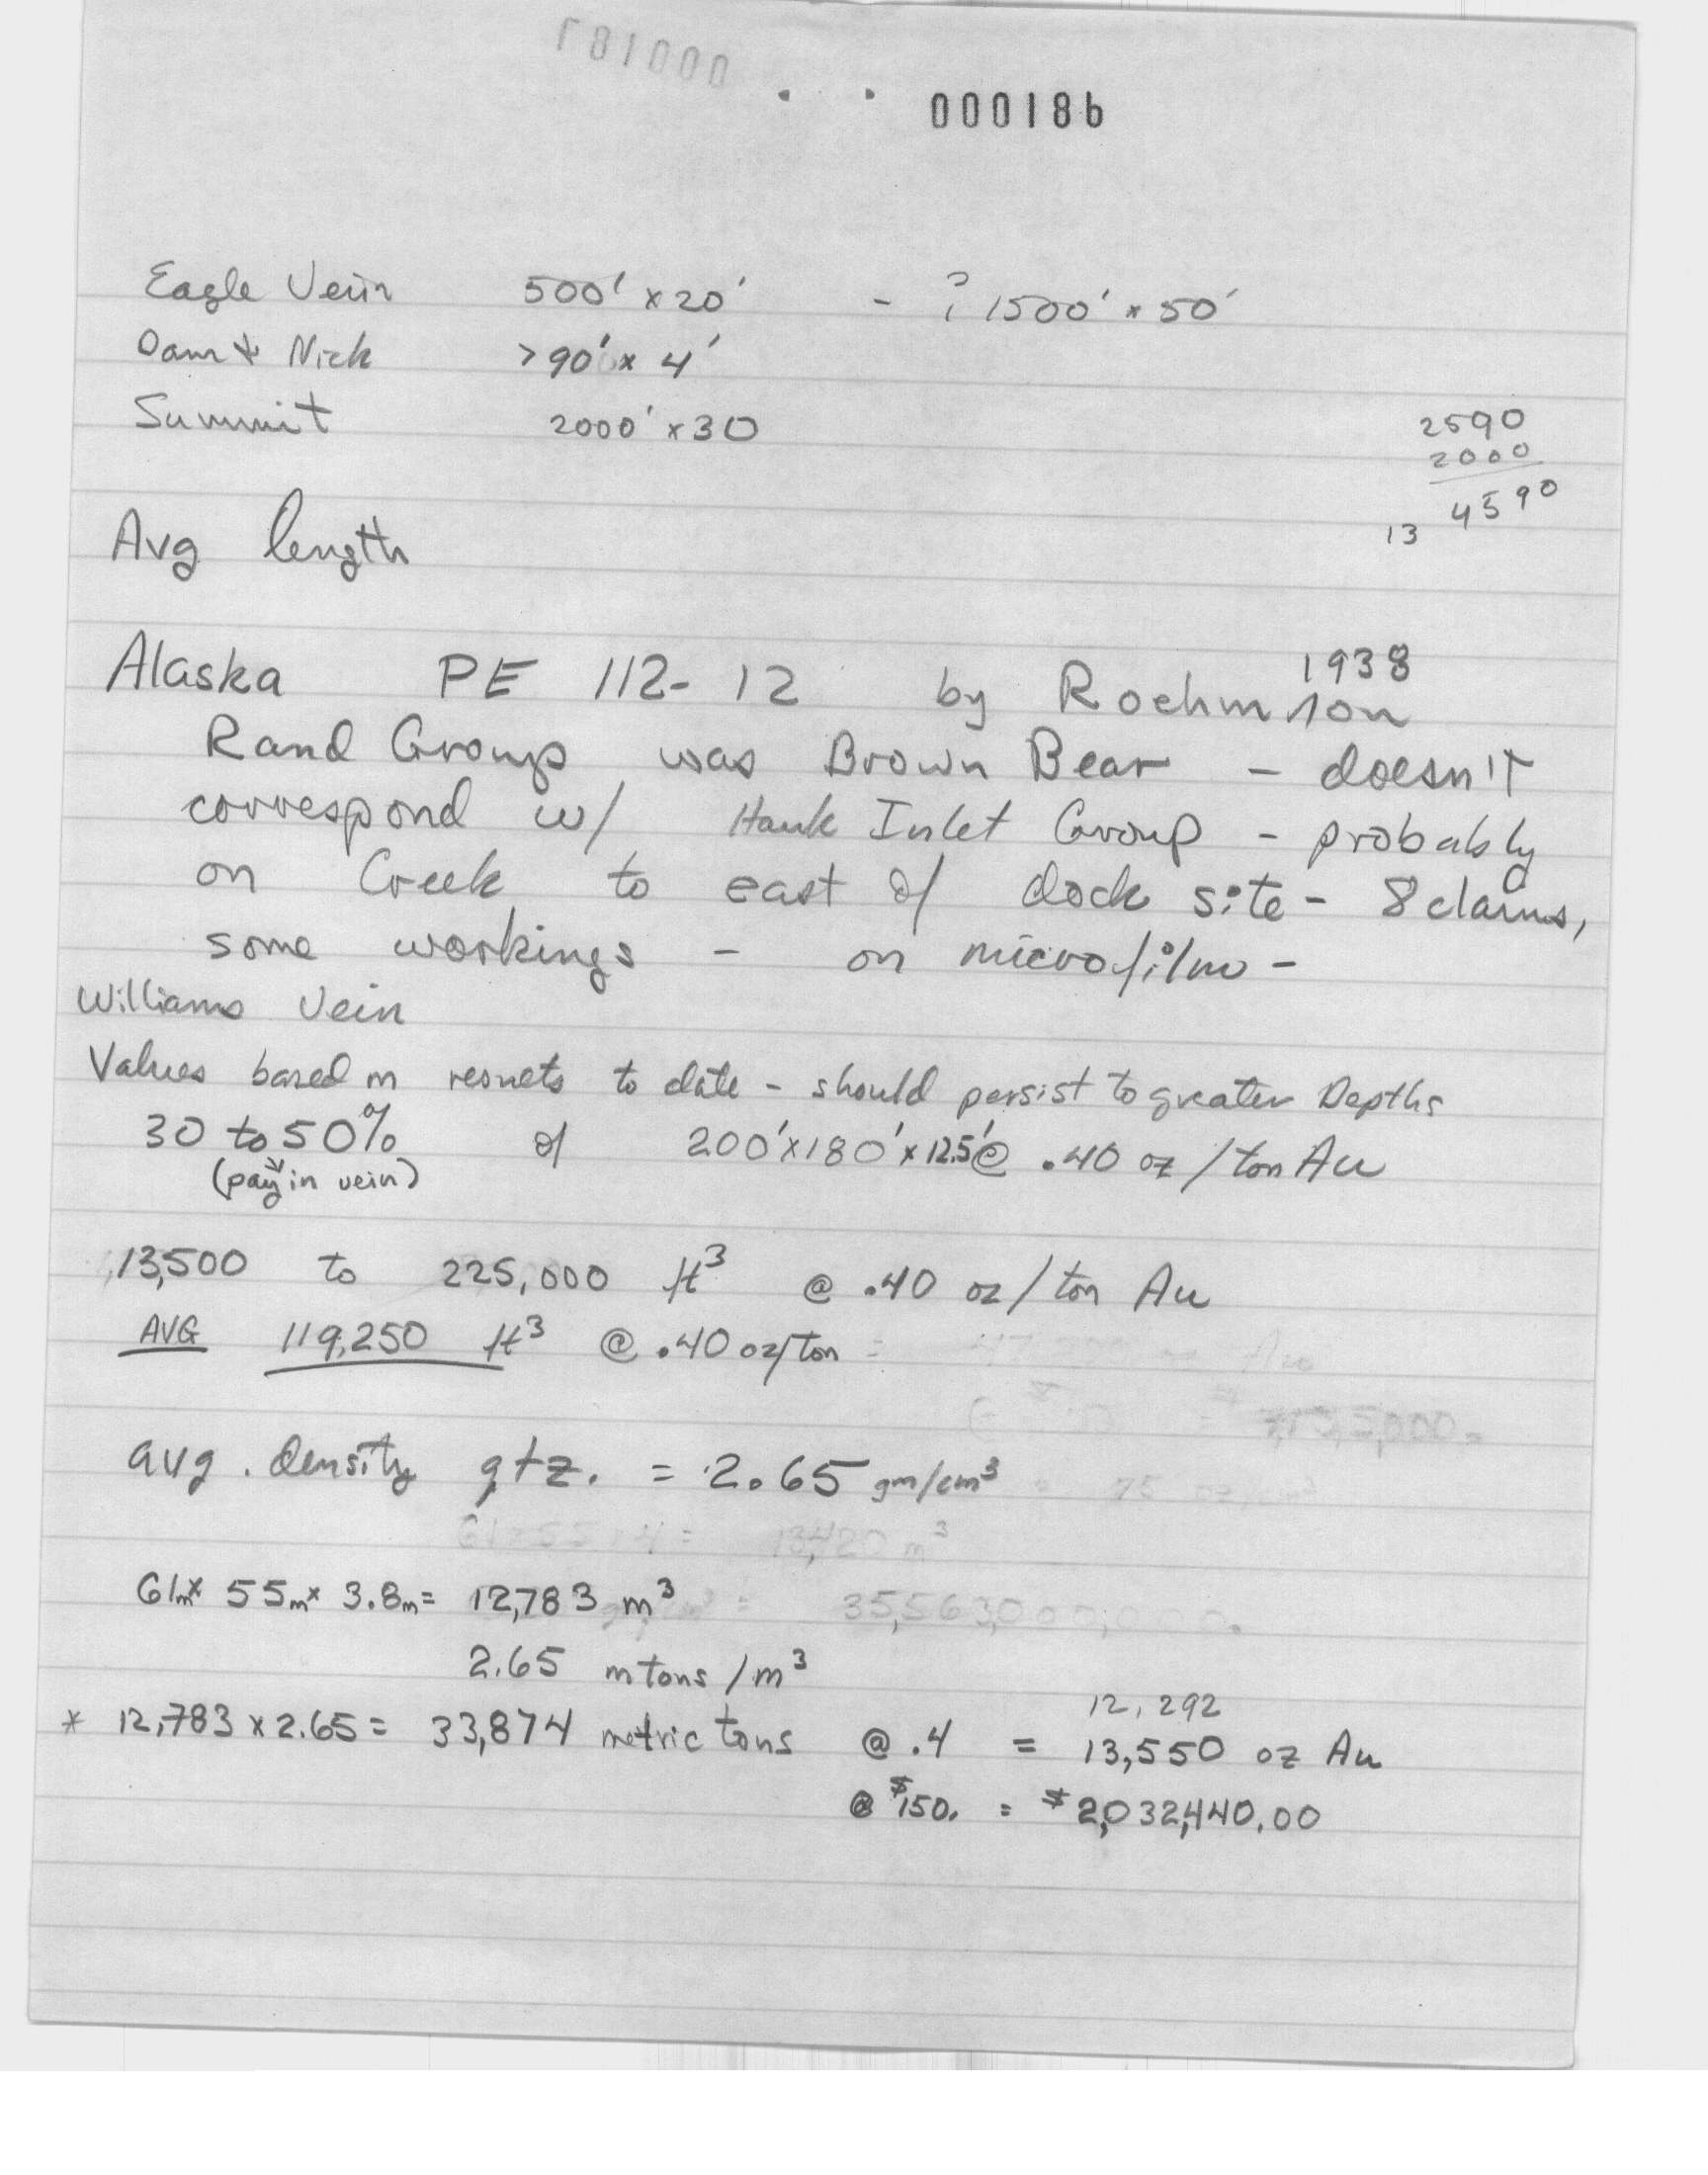 000186
Eagle Vein 500' x 20' - ? 1500' x 50'
Dan & Nick >90' x 4'
Summit 2000' x 30
2590
2000
4590
13
Avg length
Alaska PE 112-12 by Roehm 1938
on
Rand Group was Brown Bear - doesn't
correspond w/ Hawk Inlet Group - probably
on Creek to east of dock site - 8 claims,
some workings - on microfilm -
Williams Vein
Values based on results to date - should persist to greater Depths
30 to 50% of 200' x 180' x 12.5' @ .40 oz / ton Au
(pay in vein)
13,500 to 225,000 ft³ @ .40 oz / ton Au
AVG 119,250 ft³ @ .40 oz/ton =
avg. density qtz. = 2.65 gm/cm³
61 x 55 x 4 = 13,420 m³
61m x 55m x 3.8m = 12,783 m³
35,563,000,000.
2.65 m tons / m³
12,292
* 12,783 x 2.65 = 33,874 metric tons @ .4 = 13,550 oz Au
@ $150. = $2,032,440.00